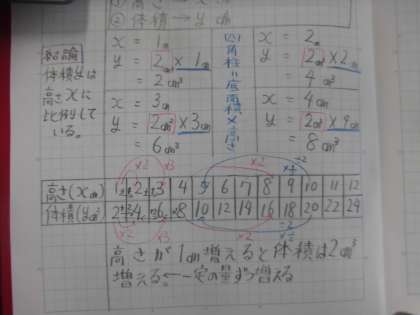 ② 体積 → y cm³
結論
体積yは
高さxに
比例して
いる。
x = 1cm
y = 2cm² × 1cm
= 2cm³
x = 3cm
y = 2cm² × 3cm
= 6cm³
四角柱=底面積×高さ
x = 2cm
y = 2cm² × 2cm
= 4cm³
x = 4cm
y = 2cm² × 4cm
= 8cm³
×2 ×3 ×2 ÷2
高さ(xcm) 1 2 3 4 5 6 7 8 9 10 11 12
体積(ycm³) 2 4 6 8 10 12 14 16 18 20 22 24
×2 ×3 ×2
高さが1cm増えると体積は2cm³
増える。←一定の量ずつ増える